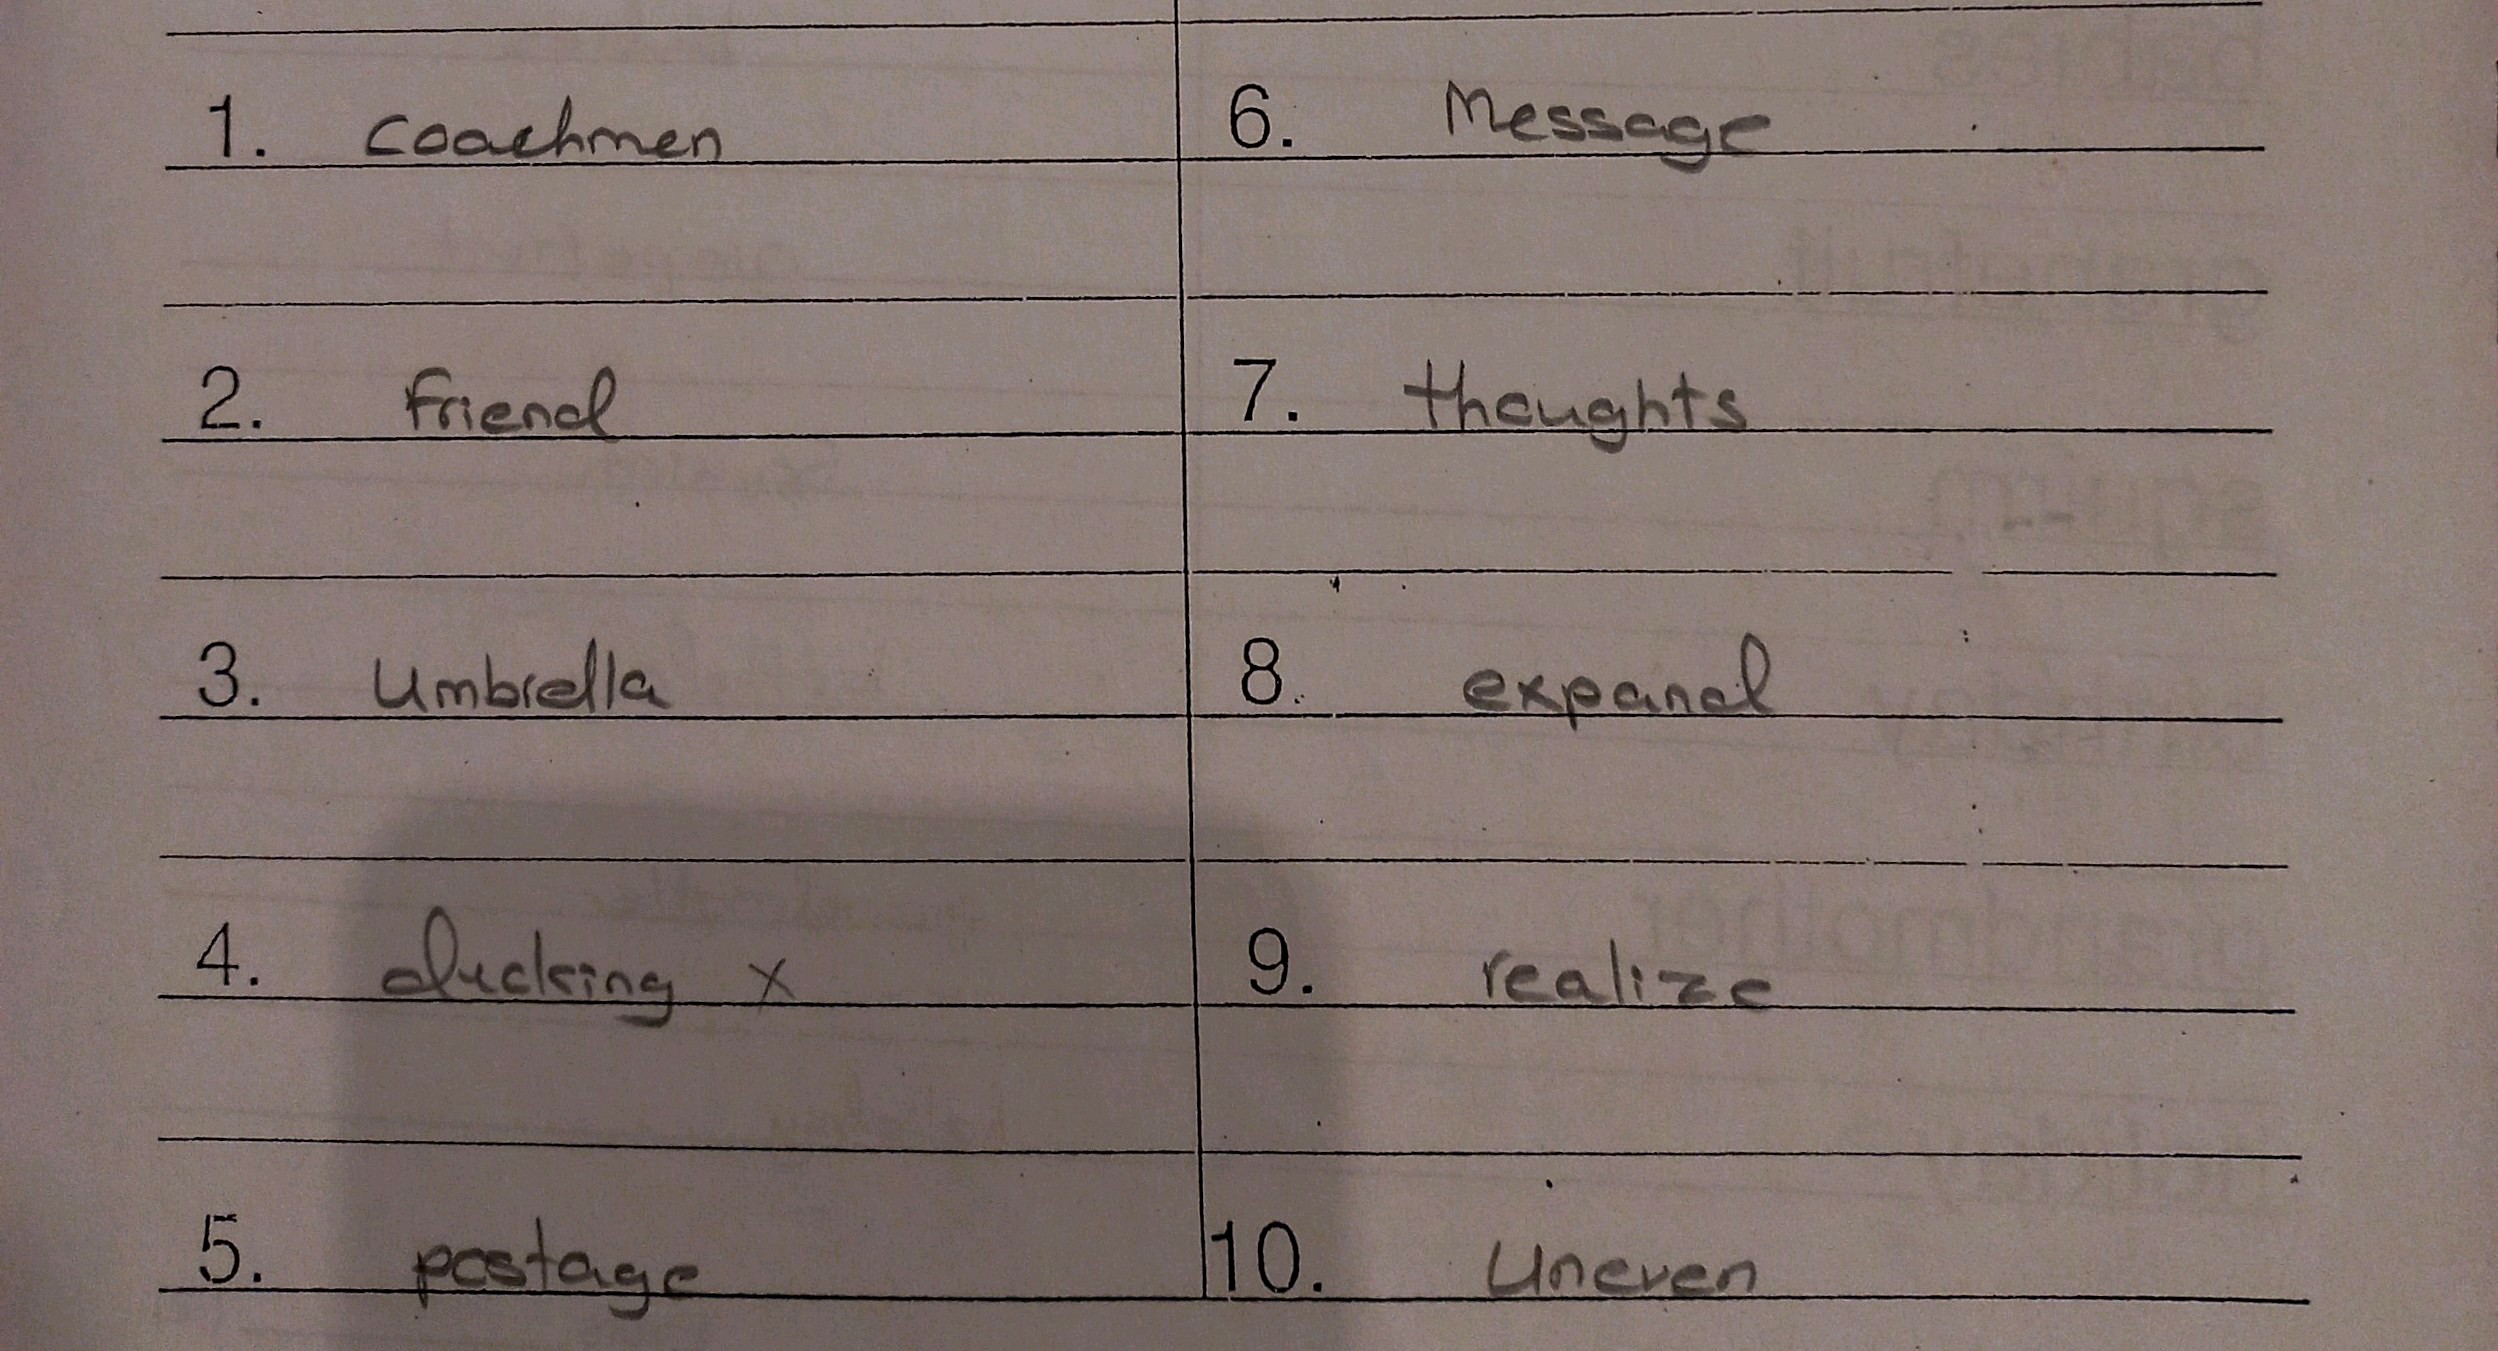 1. coachmen
2. friend
3. Umbrella
4. ducking x
5. postage
6. Message
7. thoughts
8. expand
9. realize
10. Uneven